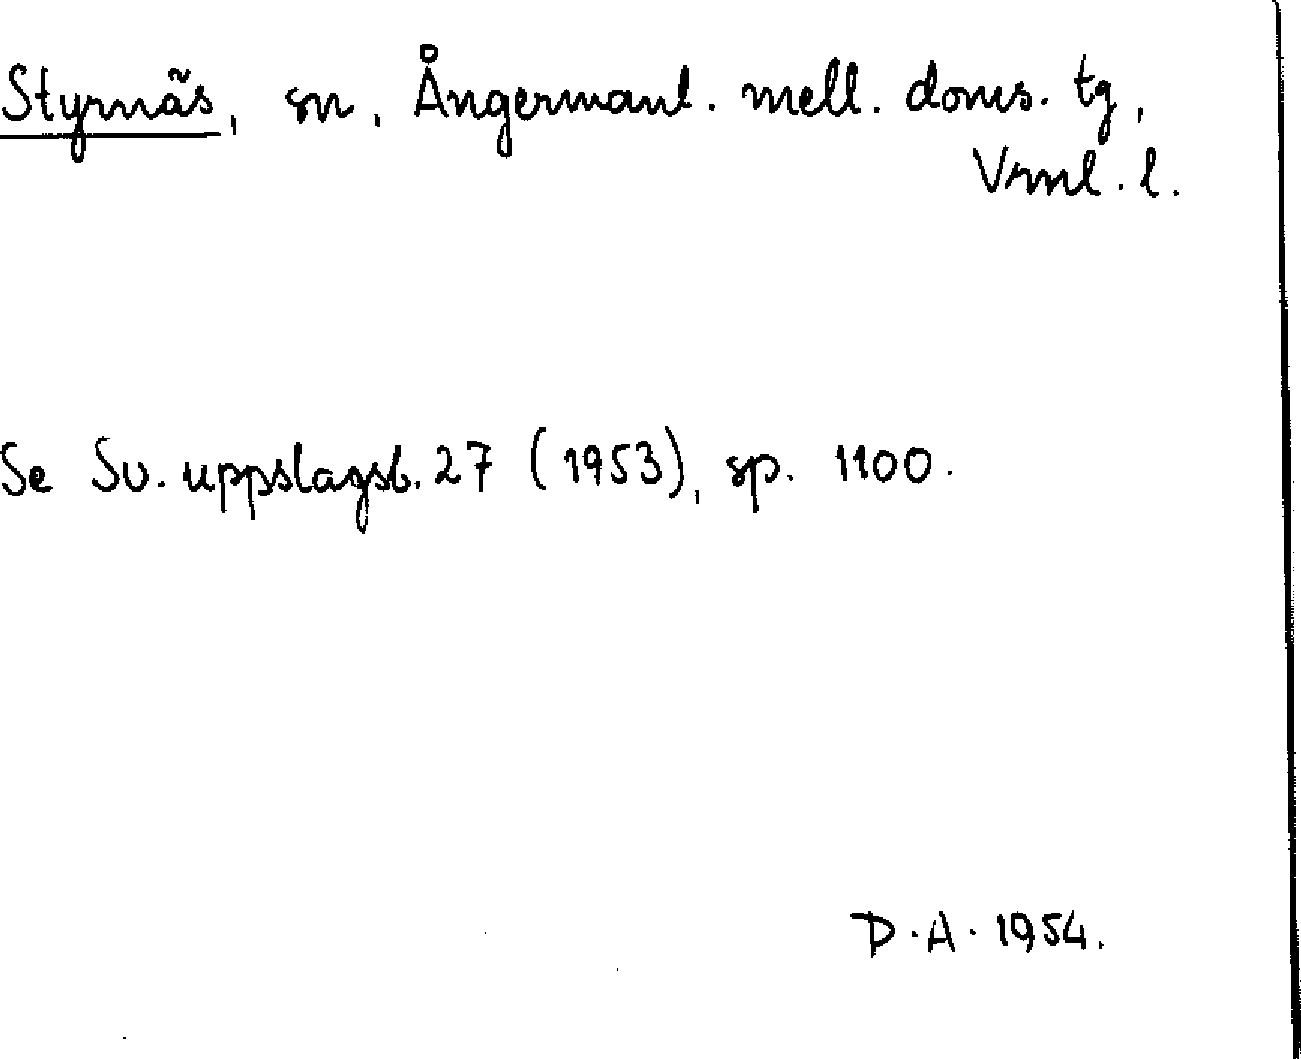 Styrnäs, sn, Ångermanl. mell. doms. tg,
Vrnl. l.
Se Sv. uppslagsb. 27 (1953), sp. 1100.
D. A. 1954.